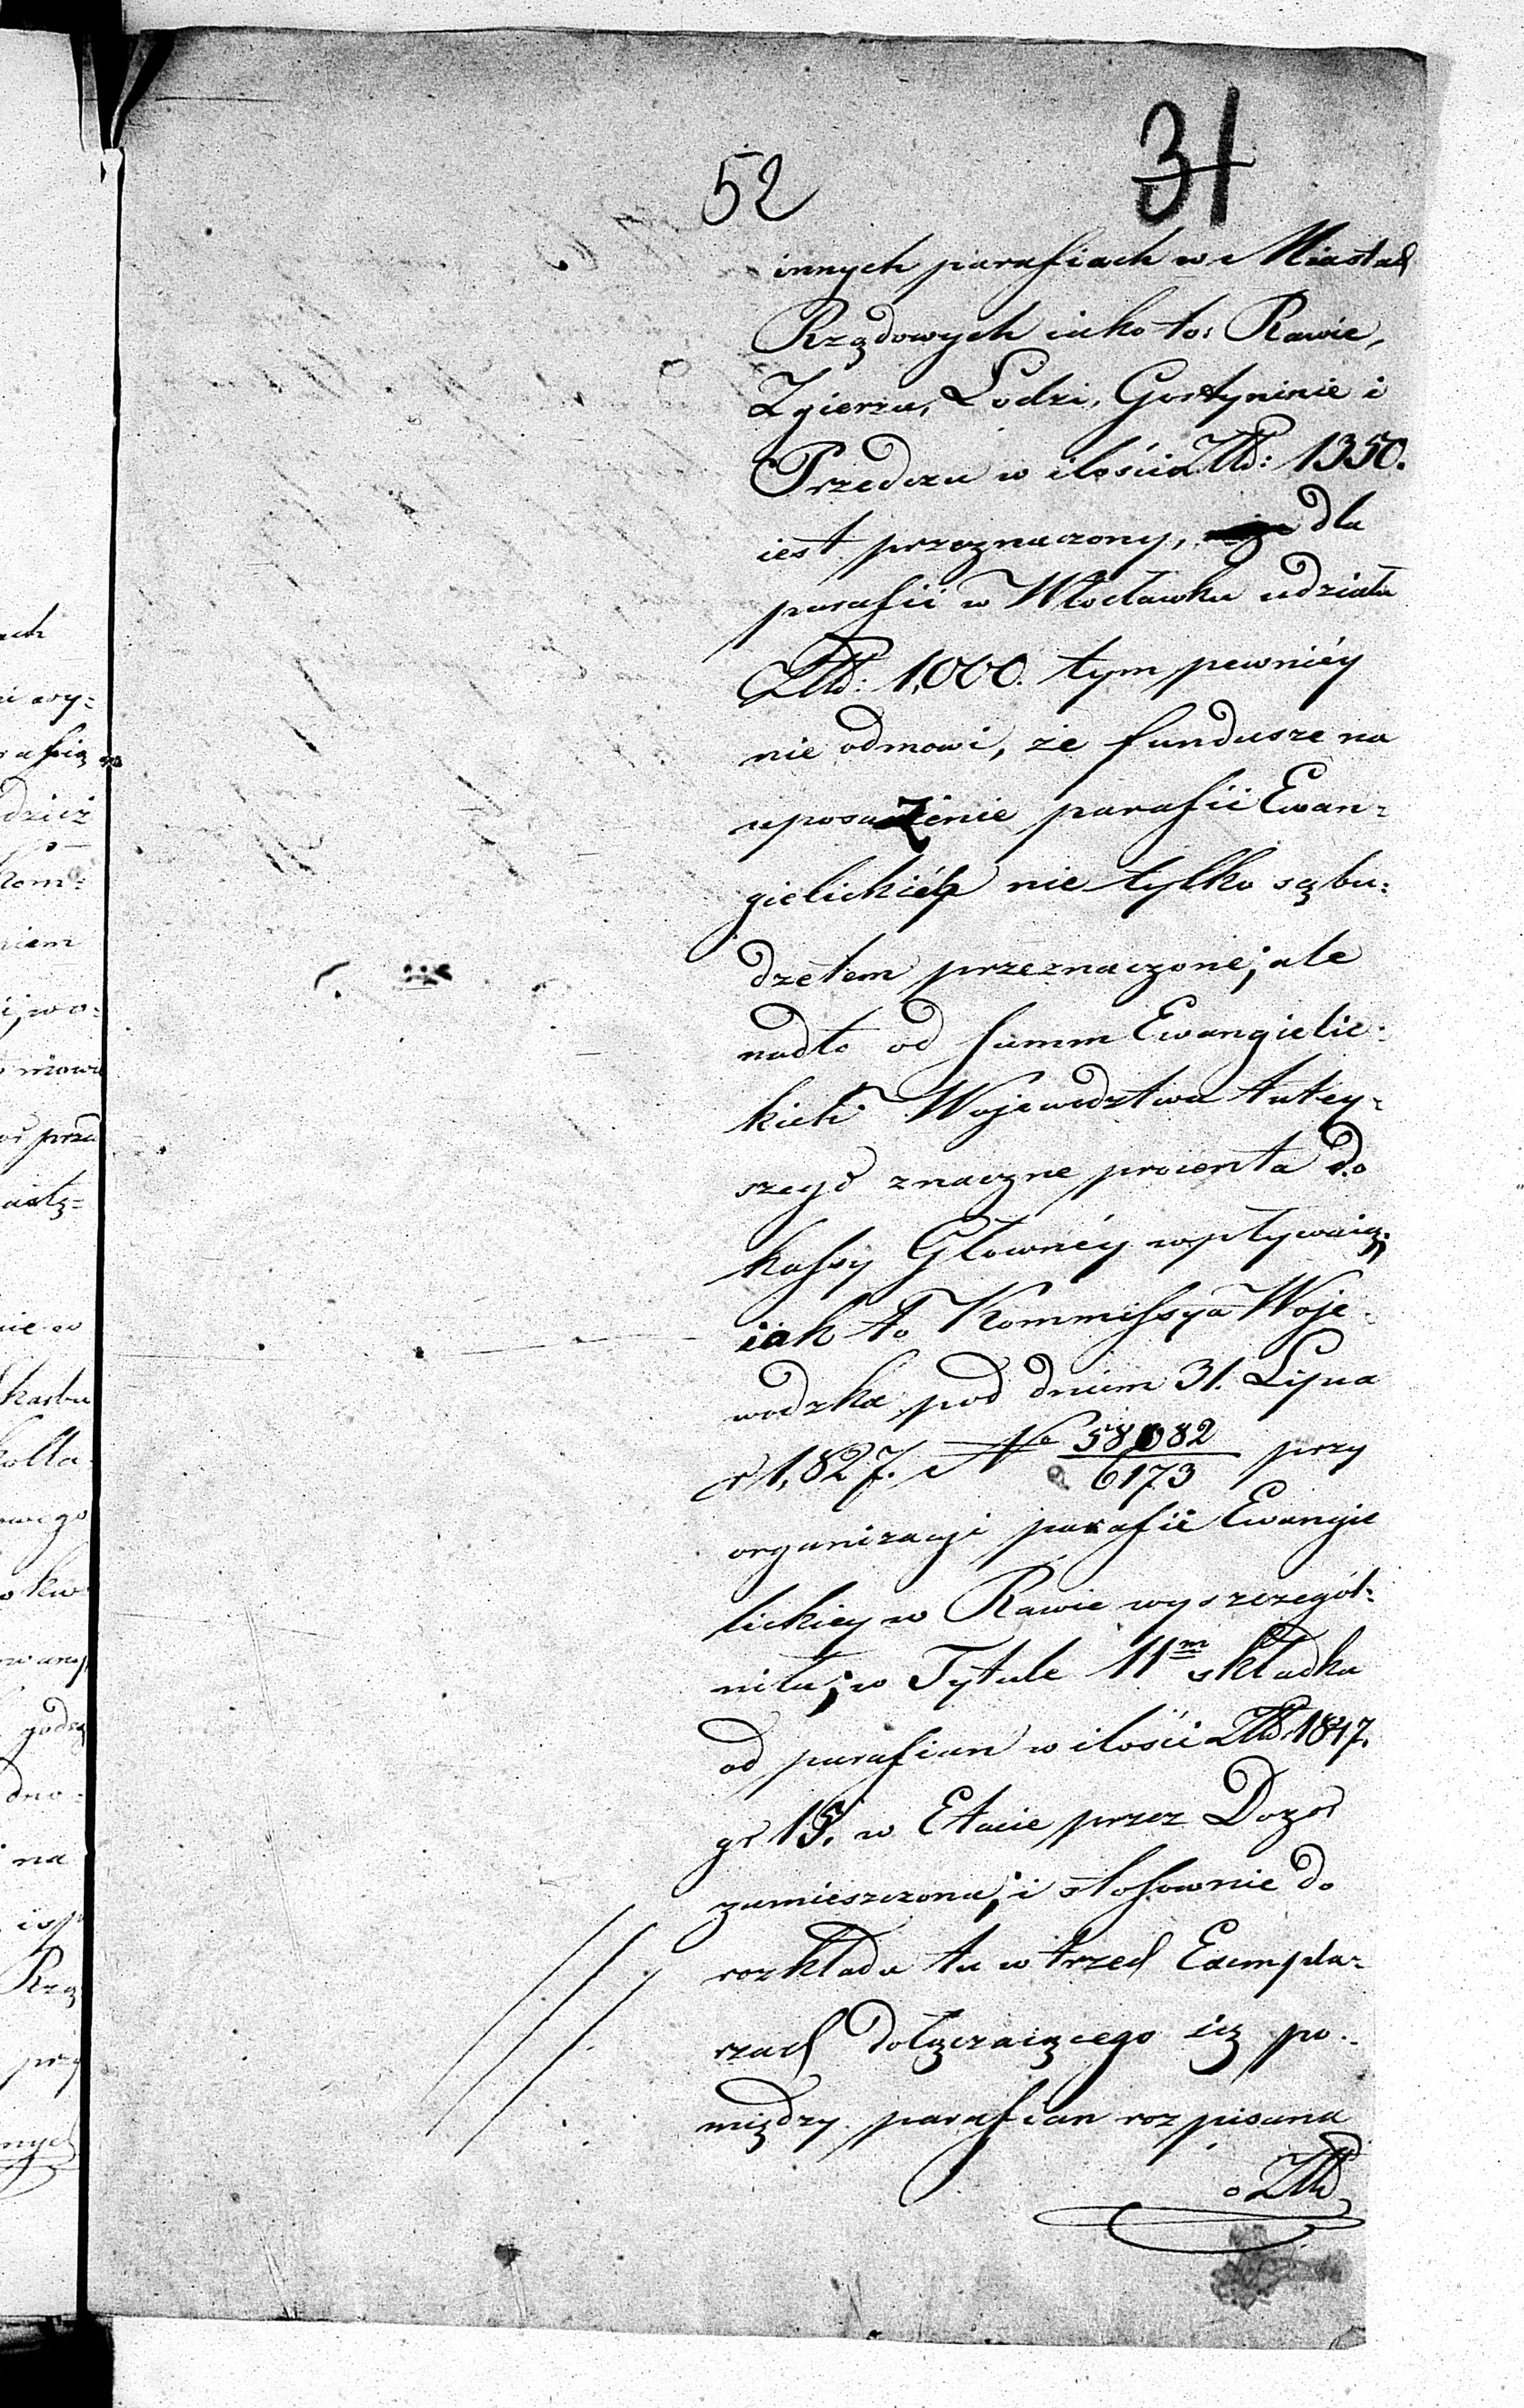 52
31
innych parafiach w Miastach
Rządowych iako to: Rawie,
Zgierzu, Łodzi, Gostyninie i
Przedczu w ilości Złł: 1350.
iest przeznaczony, dla
parafii w Włocławku udziału
Złł: 1,000. tym pewniéy
nie odmowi, że fundusze na
uposażenie parafii Ewan-
gielickiéh nie tylko są bu-
dżetem przeznaczone; ale
nadto od summ Ewangielic-
kich Wojewodztwa tutey-
szego znaczne procenta do
kassy Głownéy wpływaią;
iak to Kommissya Woje-
wodzka pod dniem 31. Lipca
r 1,827. No 58082/6173 przy
organizacyi parafii Ewangie
lickiey w Rawie wyszczegól-
niła; w Tytule 11m składka
od parafian w ilości Złł. 1847.
gr 15. w Etacie przez Dozor
zamieszczona; i stosownie do
rozkładu tu w trzech Exempla-
rzach dołączaiącego się po-
między parafian rozpisana
o Złł